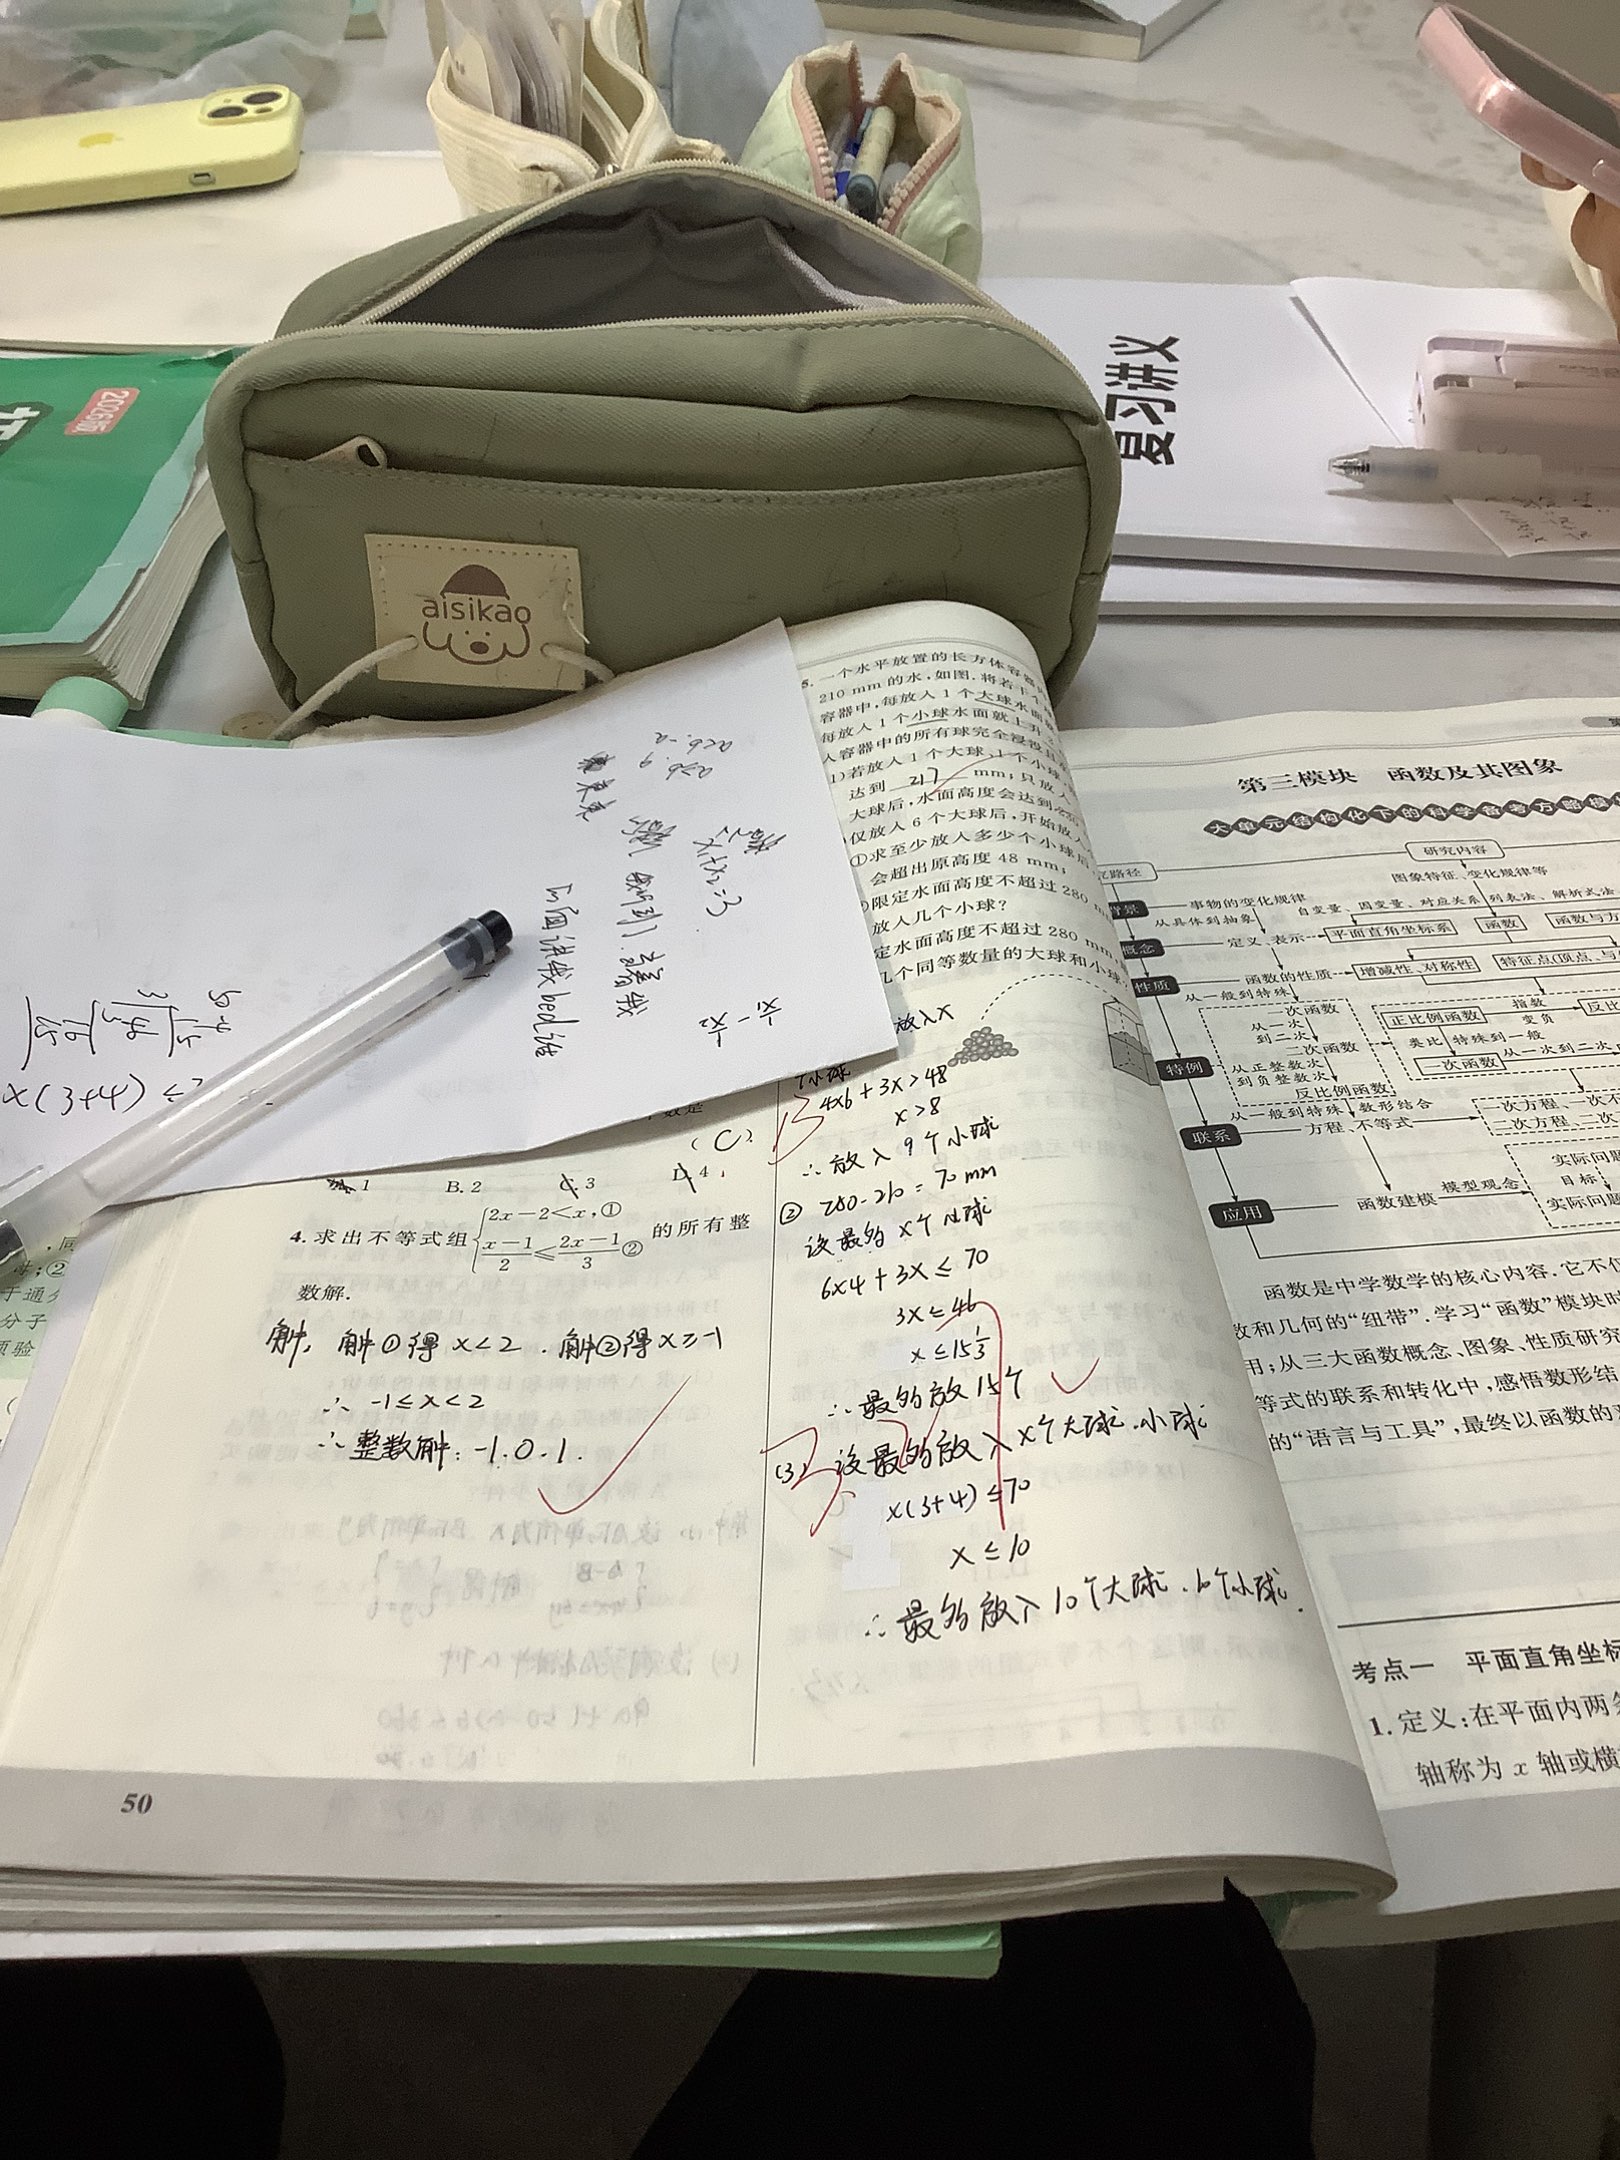 2026版
复习讲义
aisikao
5. 一个水平放置的长方体容器
210 mm 的水,如图.将若干个
容器中,每放入1个大球水面
每放入1个小球水面就上升
入容器中的所有球完全浸没
1)若放入1个大球、1个小球
达到 217 mm;只放入
大球后,水面高度会达到
仅放入6个大球后,开始放入
①求至少放入多少个小球后
会超出原高度 48 mm;
限定水面高度不超过 280 m
放入几个小球?
定水面高度不超过 280 mm
几个同等数量的大球和小球
x₁+x₂=3
x(3+4)≤
数是
(C)
A. 1 B. 2 C. 3 D. 4
4. 求出不等式组 {2x-2<x,① (x-1)/2≤(2x-1)/3② 的所有整
数解.
解, 解①得 x<2 . 解②得 x≥-1
∴ -1≤x<2
∴ 整数解: -1.0.1.
放入x
个小球
4x6+3x>48
x>8
∴ 放入9个小球
② 280-210=70mm
设最多x个小球
6x4+3x≤70
3x≤46
x≤15⅓
∴ 最多放15个
(3) 设最多放入x个大球.小球
x(3+4)≤70
x≤10
∴ 最多放入10个大球.10个小球.
50
第三模块 函数及其图象
大单元结构化下的科学备考方略模
研究内容
图象特征、变化规律等
路径
背景
事物的变化规律
从具体到抽象
自变量、因变量、对应关系
列表法、解析式法
概念
定义、表示
平面直角坐标系
函数
函数与方
性质
函数的性质
从一般到特殊
增减性、对称性
特征点(顶点、与
特例
二次函数
从一次
到二次
二次函数
从正整数次
到负整数次
反比例函数
正比例函数
指数
变负
反比
类比
特殊到一般
一次函数
从一次到二次
从一般到特殊
数形结合
联系
方程、不等式
一次方程、一次不
二次方程、二次
应用
函数建模
模型观念
实际问题
目标
实际问
函数是中学数学的核心内容.它不仅
数和几何的“纽带”.学习“函数”模块时
用;从三大函数概念、图象、性质研究
等式的联系和转化中,感悟数形结
的“语言与工具”,最终以函数的
考点一 平面直角坐标
1. 定义:在平面内两条
轴称为 x 轴或横